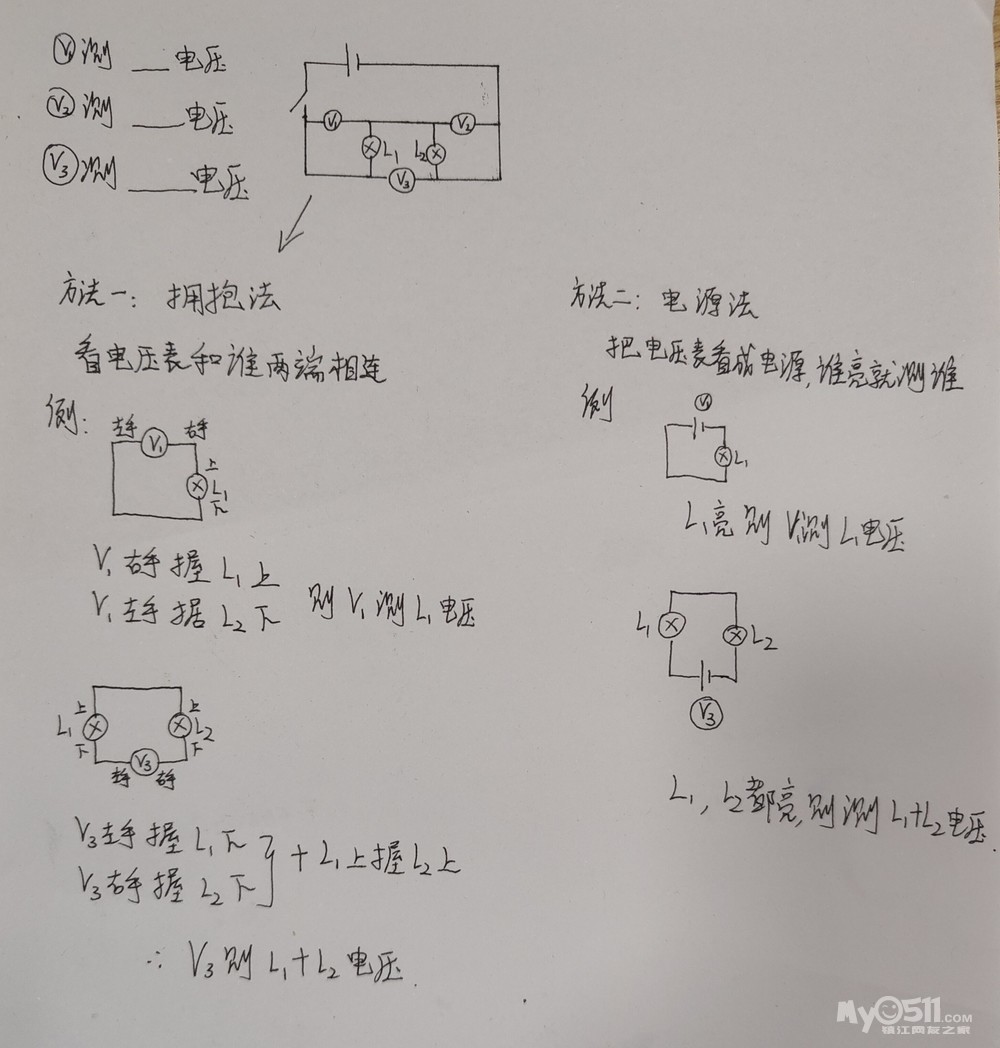 V₁测 ___ 电压
V₂测 ___ 电压
V₃测 ___ 电压
V₁ V₂
L₁ L₂
V₃
方法一：拥抱法
看电压表和谁两端相连
例：
左手 V₁ 右手
上
L₁
下
V₁右手握L₁上
V₁左手据L₂下
则V₁测L₁电压
上 上
L₁ L₂
下 下
V₃
左手 右手
V₃左手握L₁下
V₃右手握L₂下
+L₁上握L₂上
∴ V₃则L₁+L₂电压.
方法二：电源法
把电压表看成电源,谁亮就测谁
例
V₁
L₁
L₁亮则V₁测L₁电压
L₁ L₂
V₃
L₁,L₂都亮,则测L₁+L₂电压.
My0511.COM
镇江网友之家